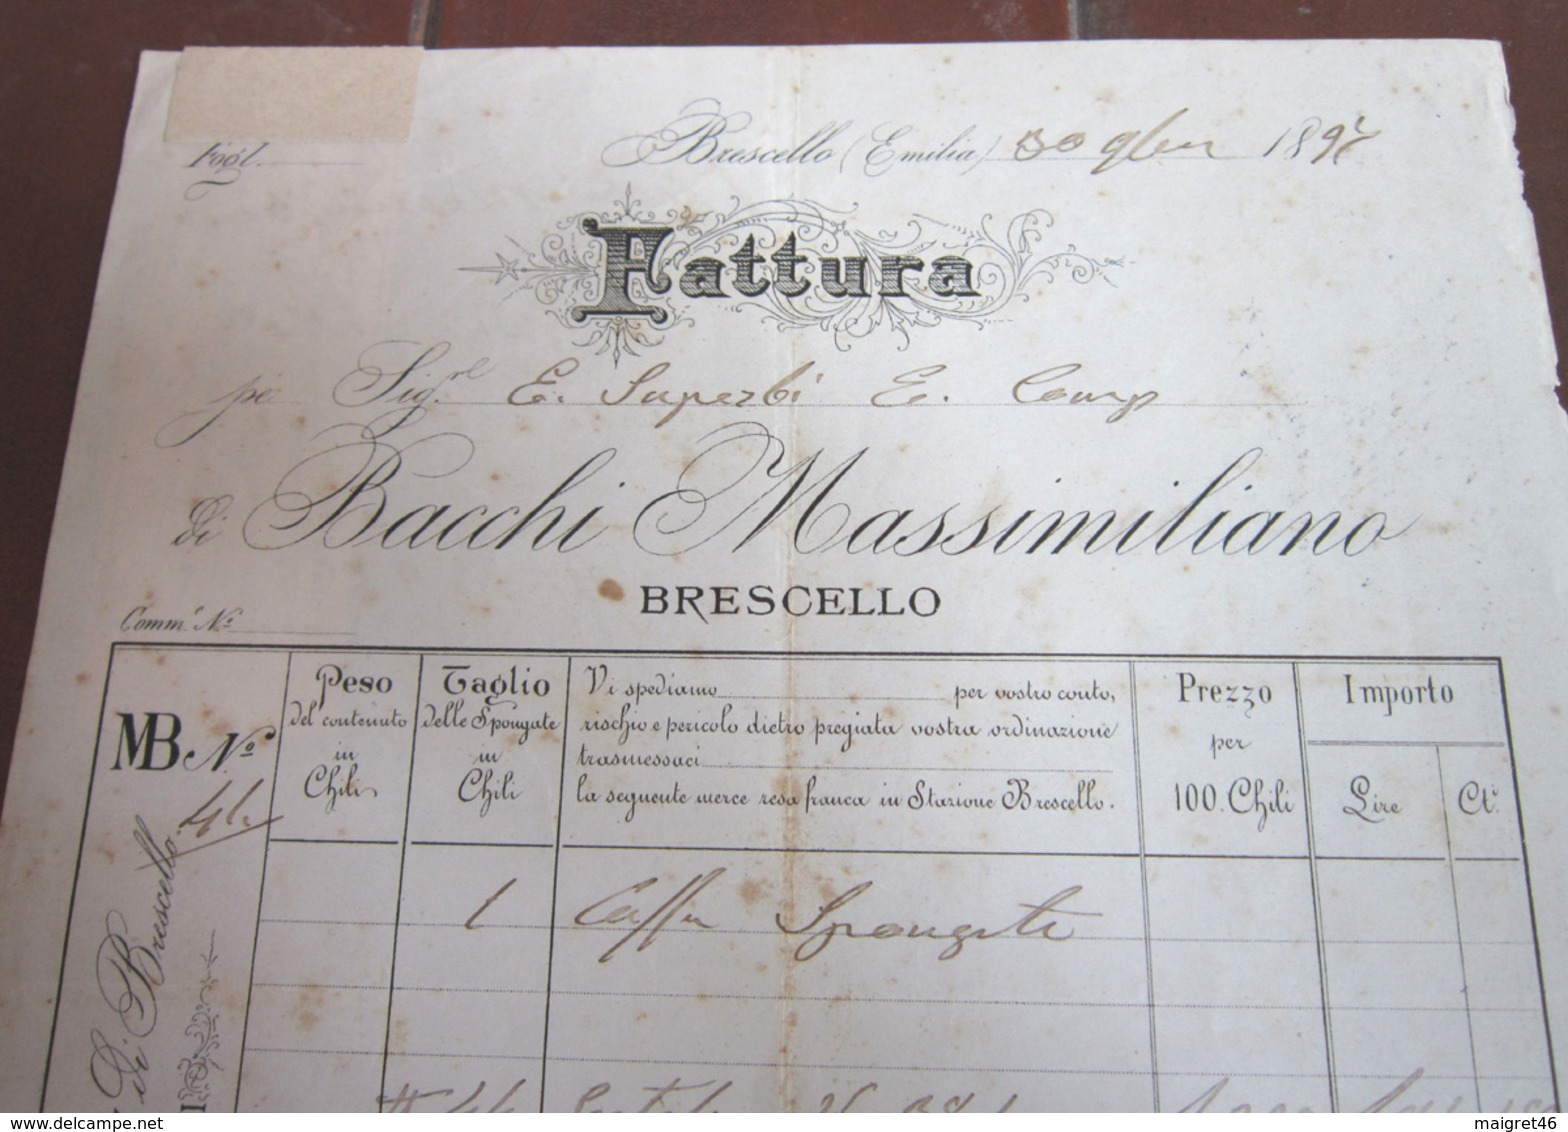 Fogl.
Brescello (Emilia) 30 9bre 189
Fattura
pe Sig.ri E. Superbi E. Comp
di Bacchi Massimiliano
BRESCELLO
Comm. N.º
MB N.º
Peso del contenuto in Chili
Taglio delle Spongate in Chili
Vi spediamo per vostro conto,
rischio e pericolo dietro pregiata vostra ordinazione
trasmessaci
la seguente merce resa franca in Stazione Brescello.
Prezzo per 100. Chili
Importo
Lire
Ct.
1 Cassa Spongate
di Brescello
delcampe.net
maigret46